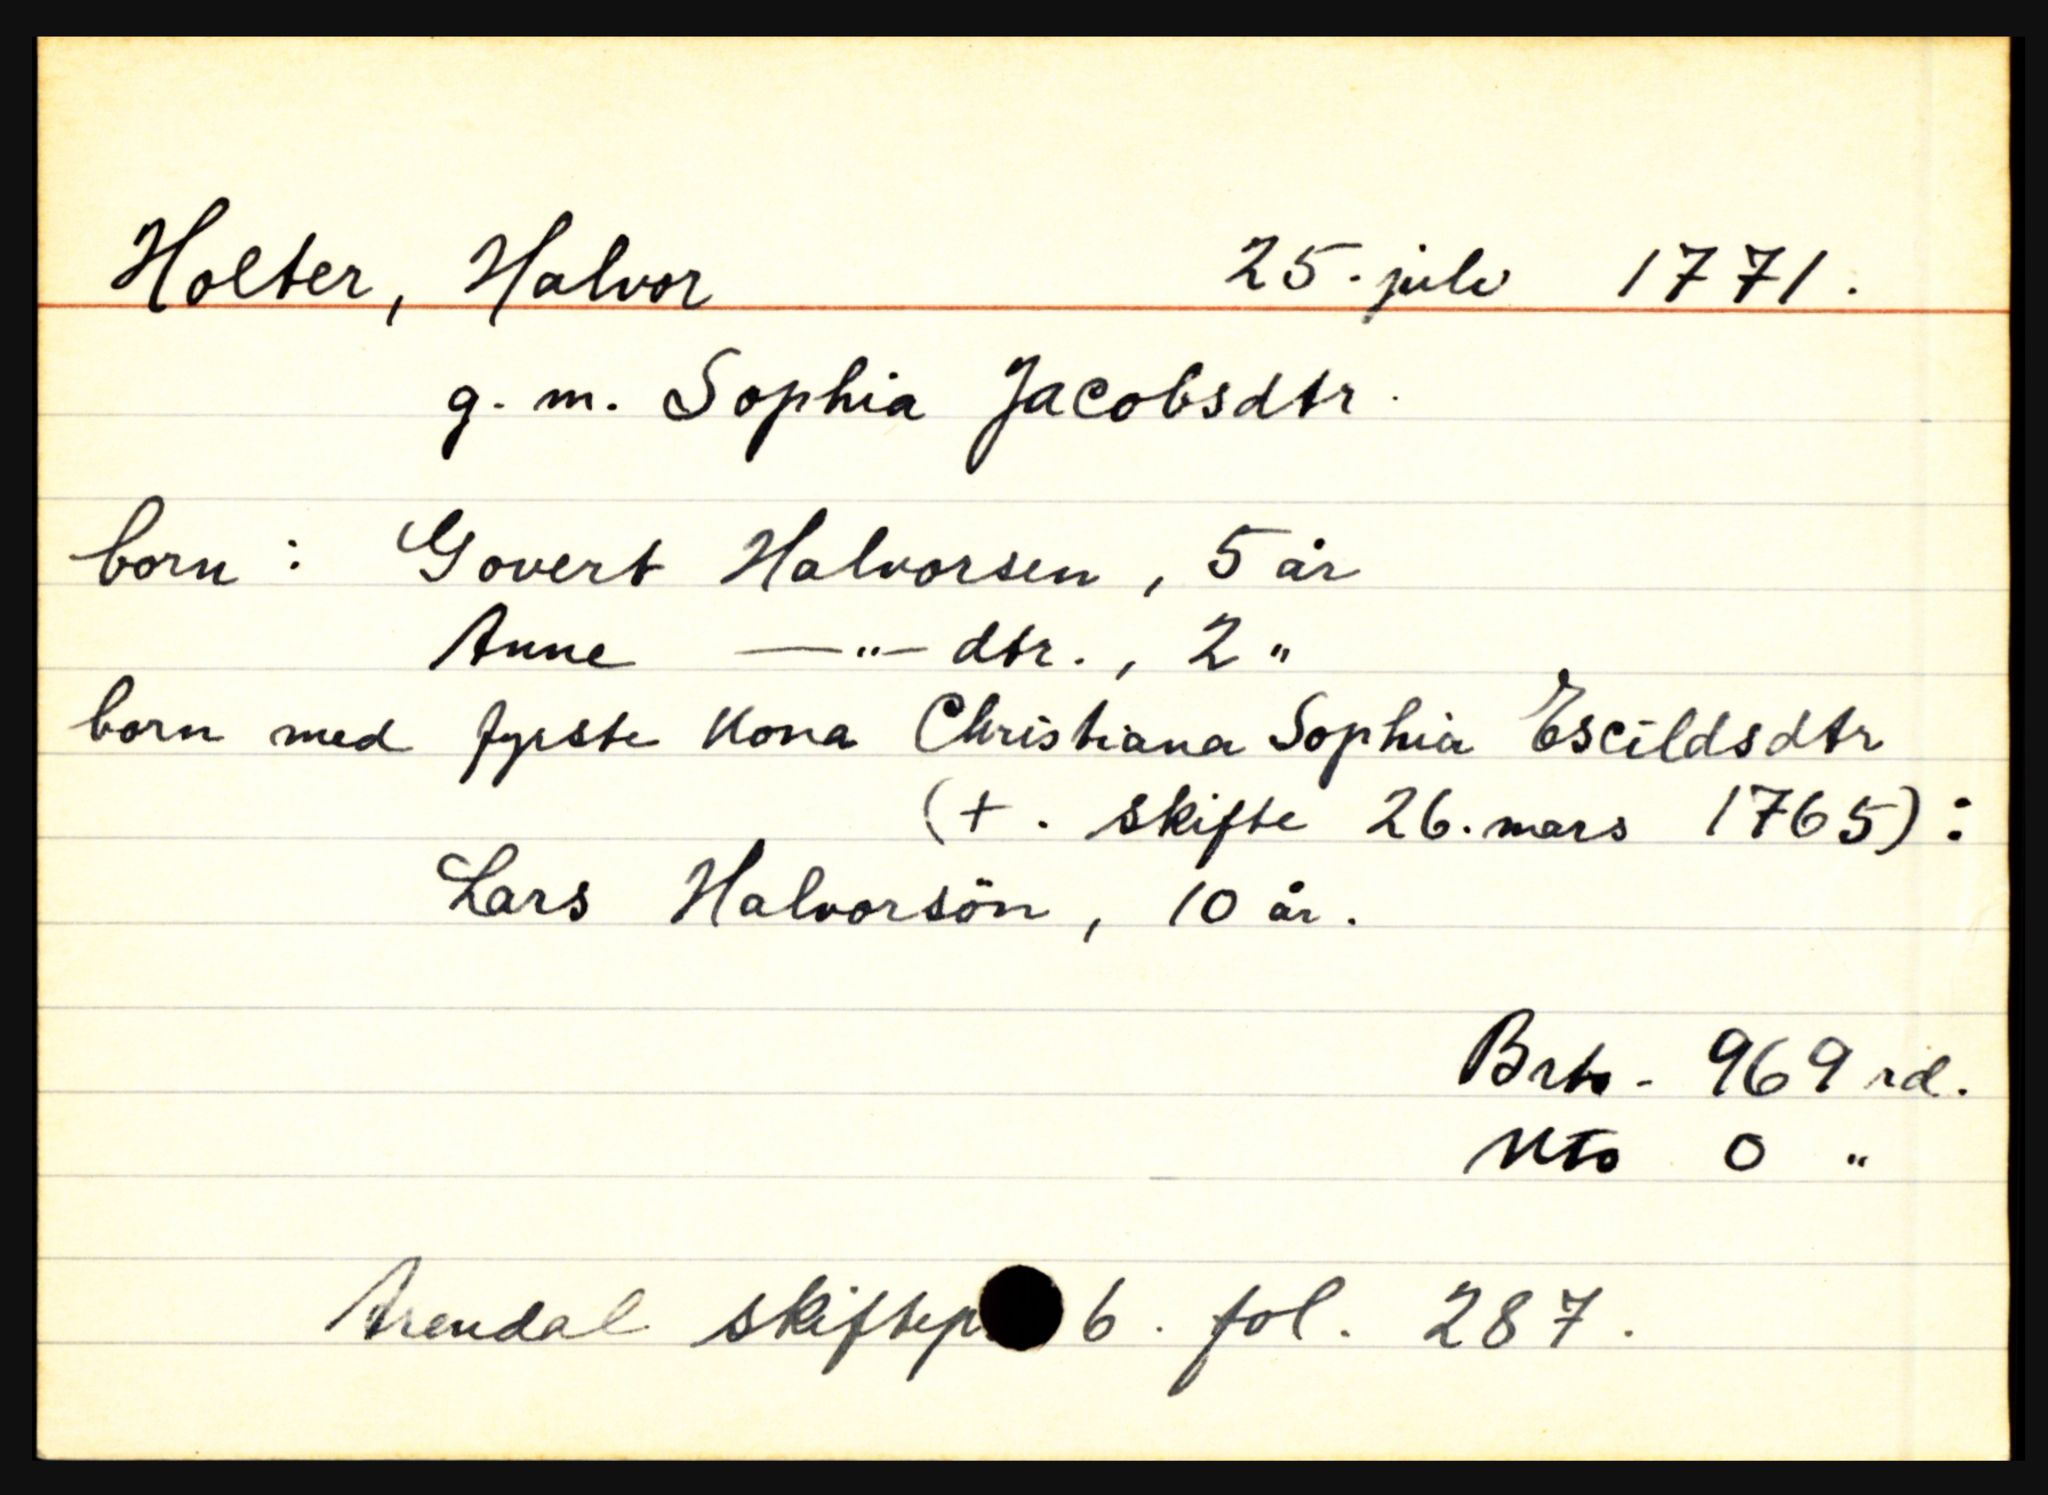 Holter, Halvor 25. juli 1771.
g. m. Sophia Jacobsdtr.
born : Govert Halvorsen, 5 år
Anne —"— dtr., 2 "
born med fyrste kona Christiana Sophia Escildsdtr
(+. skifte 26. mars 1765):
Lars Halvorsön, 10 år.
Brto - 969 rd.
Nto 0 "
Arendal skiftep. 6. fol. 287.